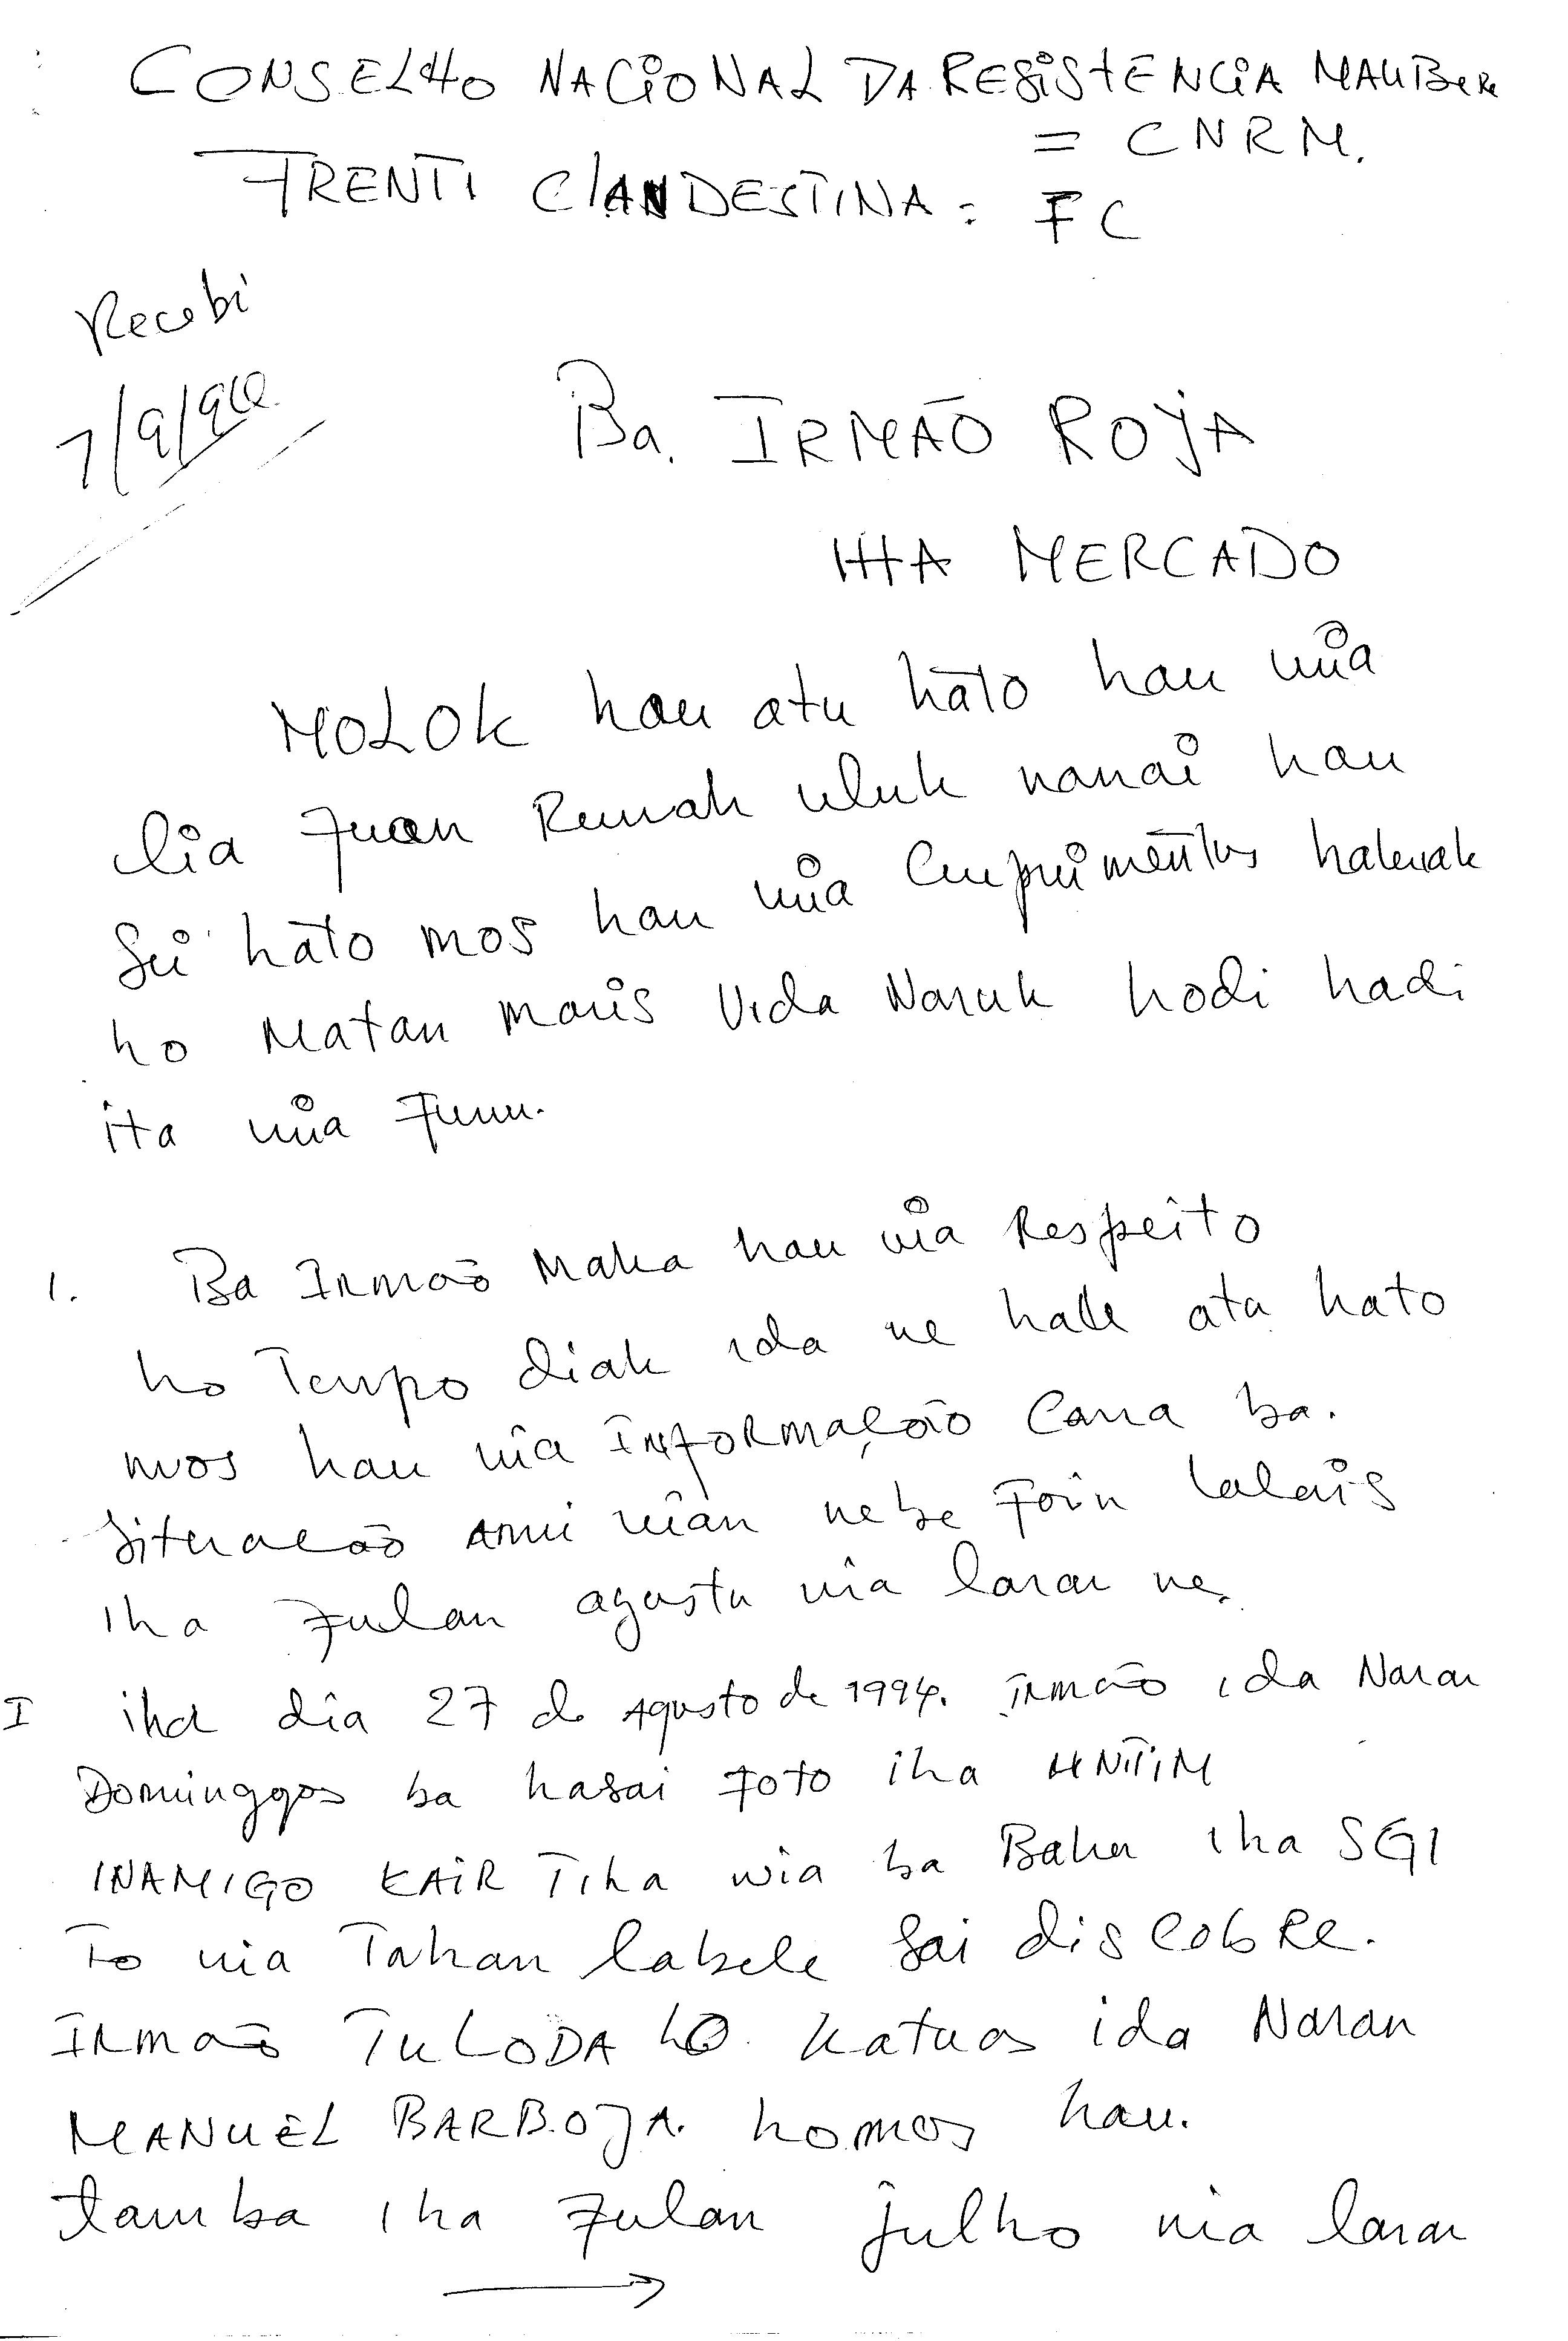 CONSELHO NACIONAL DA RESISTENCIA MAUBERE
= CNRM.
FRENTI CLANDESTINA = FC
Recebi
7/9/94
Ba. IRMÃO ROJA
IHA MERCADO
MOLOK hau atu hāto hau nia
lia fuan Rumah uluk nanai hau
Sei hāto mos hau nia Cumprimēntus hakuak
ho Matan moris Vida Naruk hodi hadi
ita nia Funu.
1. Ba Irmão Maka hau nia Respeito
ho Tempo diak ida ne hakk atu hato
mos hau nia INFORMAÇÃO Cona ba.
Situacão Ami nian nebe Foin lalais
iha Fulan agustu nia laran ne.
I iha dia 27 de Agusto de 1994. irmão ida Naran
Dominggos ba hasai Foto iha HNTIM
INAMIGO KAIR Tiha nia ba Baku iha SGI
To nia Tahan labele Sai discobre.
IRmão TULODA ho. Katuas ida Naran
MANUEL BARBOJA. homos hau.
tamba iha Fulan julho nia laran